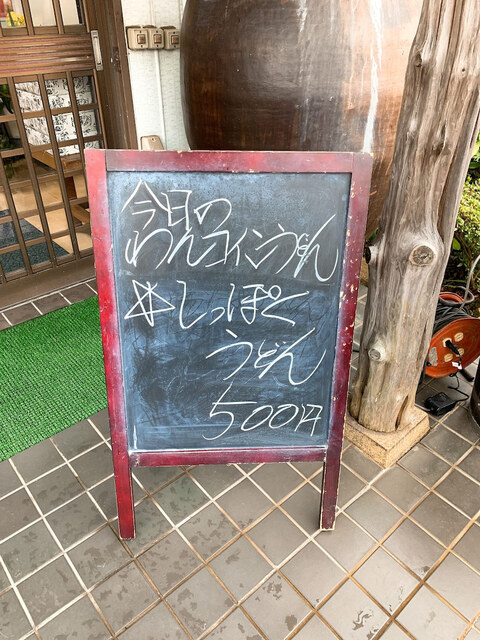 今日の
わんコインうどん
☆しっぽく
うどん
500円